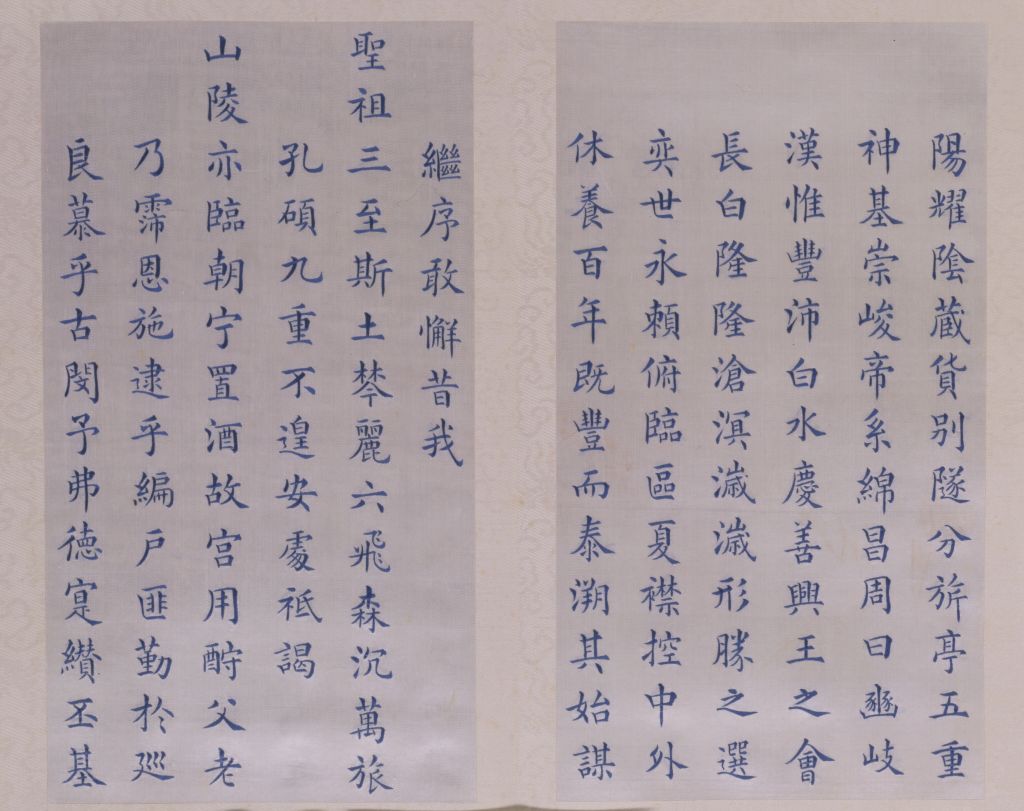 陽耀陰蔵貨别隧分旂亭五重
神基崇峻帝系綿昌周曰豳岐
漢惟豐沛白水慶善興王之會
長白隆隆滄溟濊濊形勝之選
奕世永賴俯臨區夏襟控中外
休養百年既豐而泰溯其始謀
繼序敢懈昔我
聖祖三至斯土棽麗六飛森沉萬旅
孔碩九重不遑安處祗謁
山陵亦臨朝宁置酒故宫用酧父老
乃霈恩施逮乎編户匪勤於廵
良慕乎古閔予弗德寔纘丕基